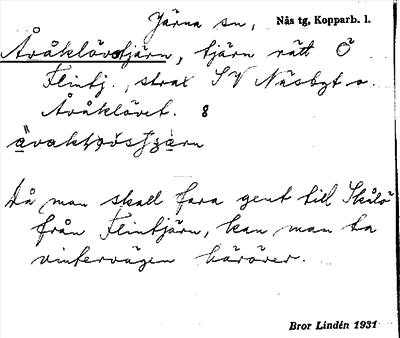 Järna sn, Näs tg, Kopparb. l.
Åråklövstjärn, tjärn rätt Ö
Flintj., strax SV Näsbyt o.
Åråklövet. 8
Då man skall fara gent till Skålö
från Flintjärn, kan man ta
vintervägen häröver.
Bror Lindén 1931